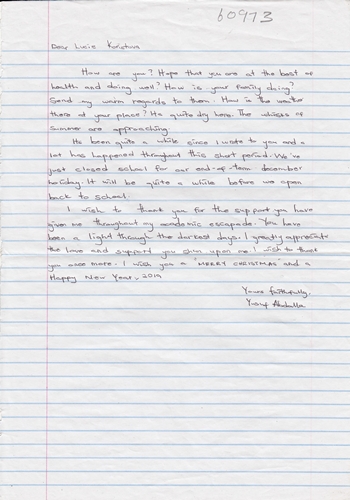 60973
Dear Lucie
How are you? Hope that you are at the best of
health and doing well? How is your family doing?
Send my warm regards to them. How is the weather
there at your place? Its quite dry here. The whisks of
summer are approaching.
Its been quite a while since I wrote to you and a
lot has happened throughout this short period. We've
just closed school for our end-of-term december
holiday. It will be quite a while before we open
back to school.
I wish to thank you for the support you have
given me throughout my academic escapade. You have
been a light through the darkest days. I greatly appreciate
the love and support you show upon me. I wish to thank
you once more. I wish you a "MERRY CHRISTMAS" and a
Happy New Year, 2019
Yours faithfully,
Yusuf Abdulla